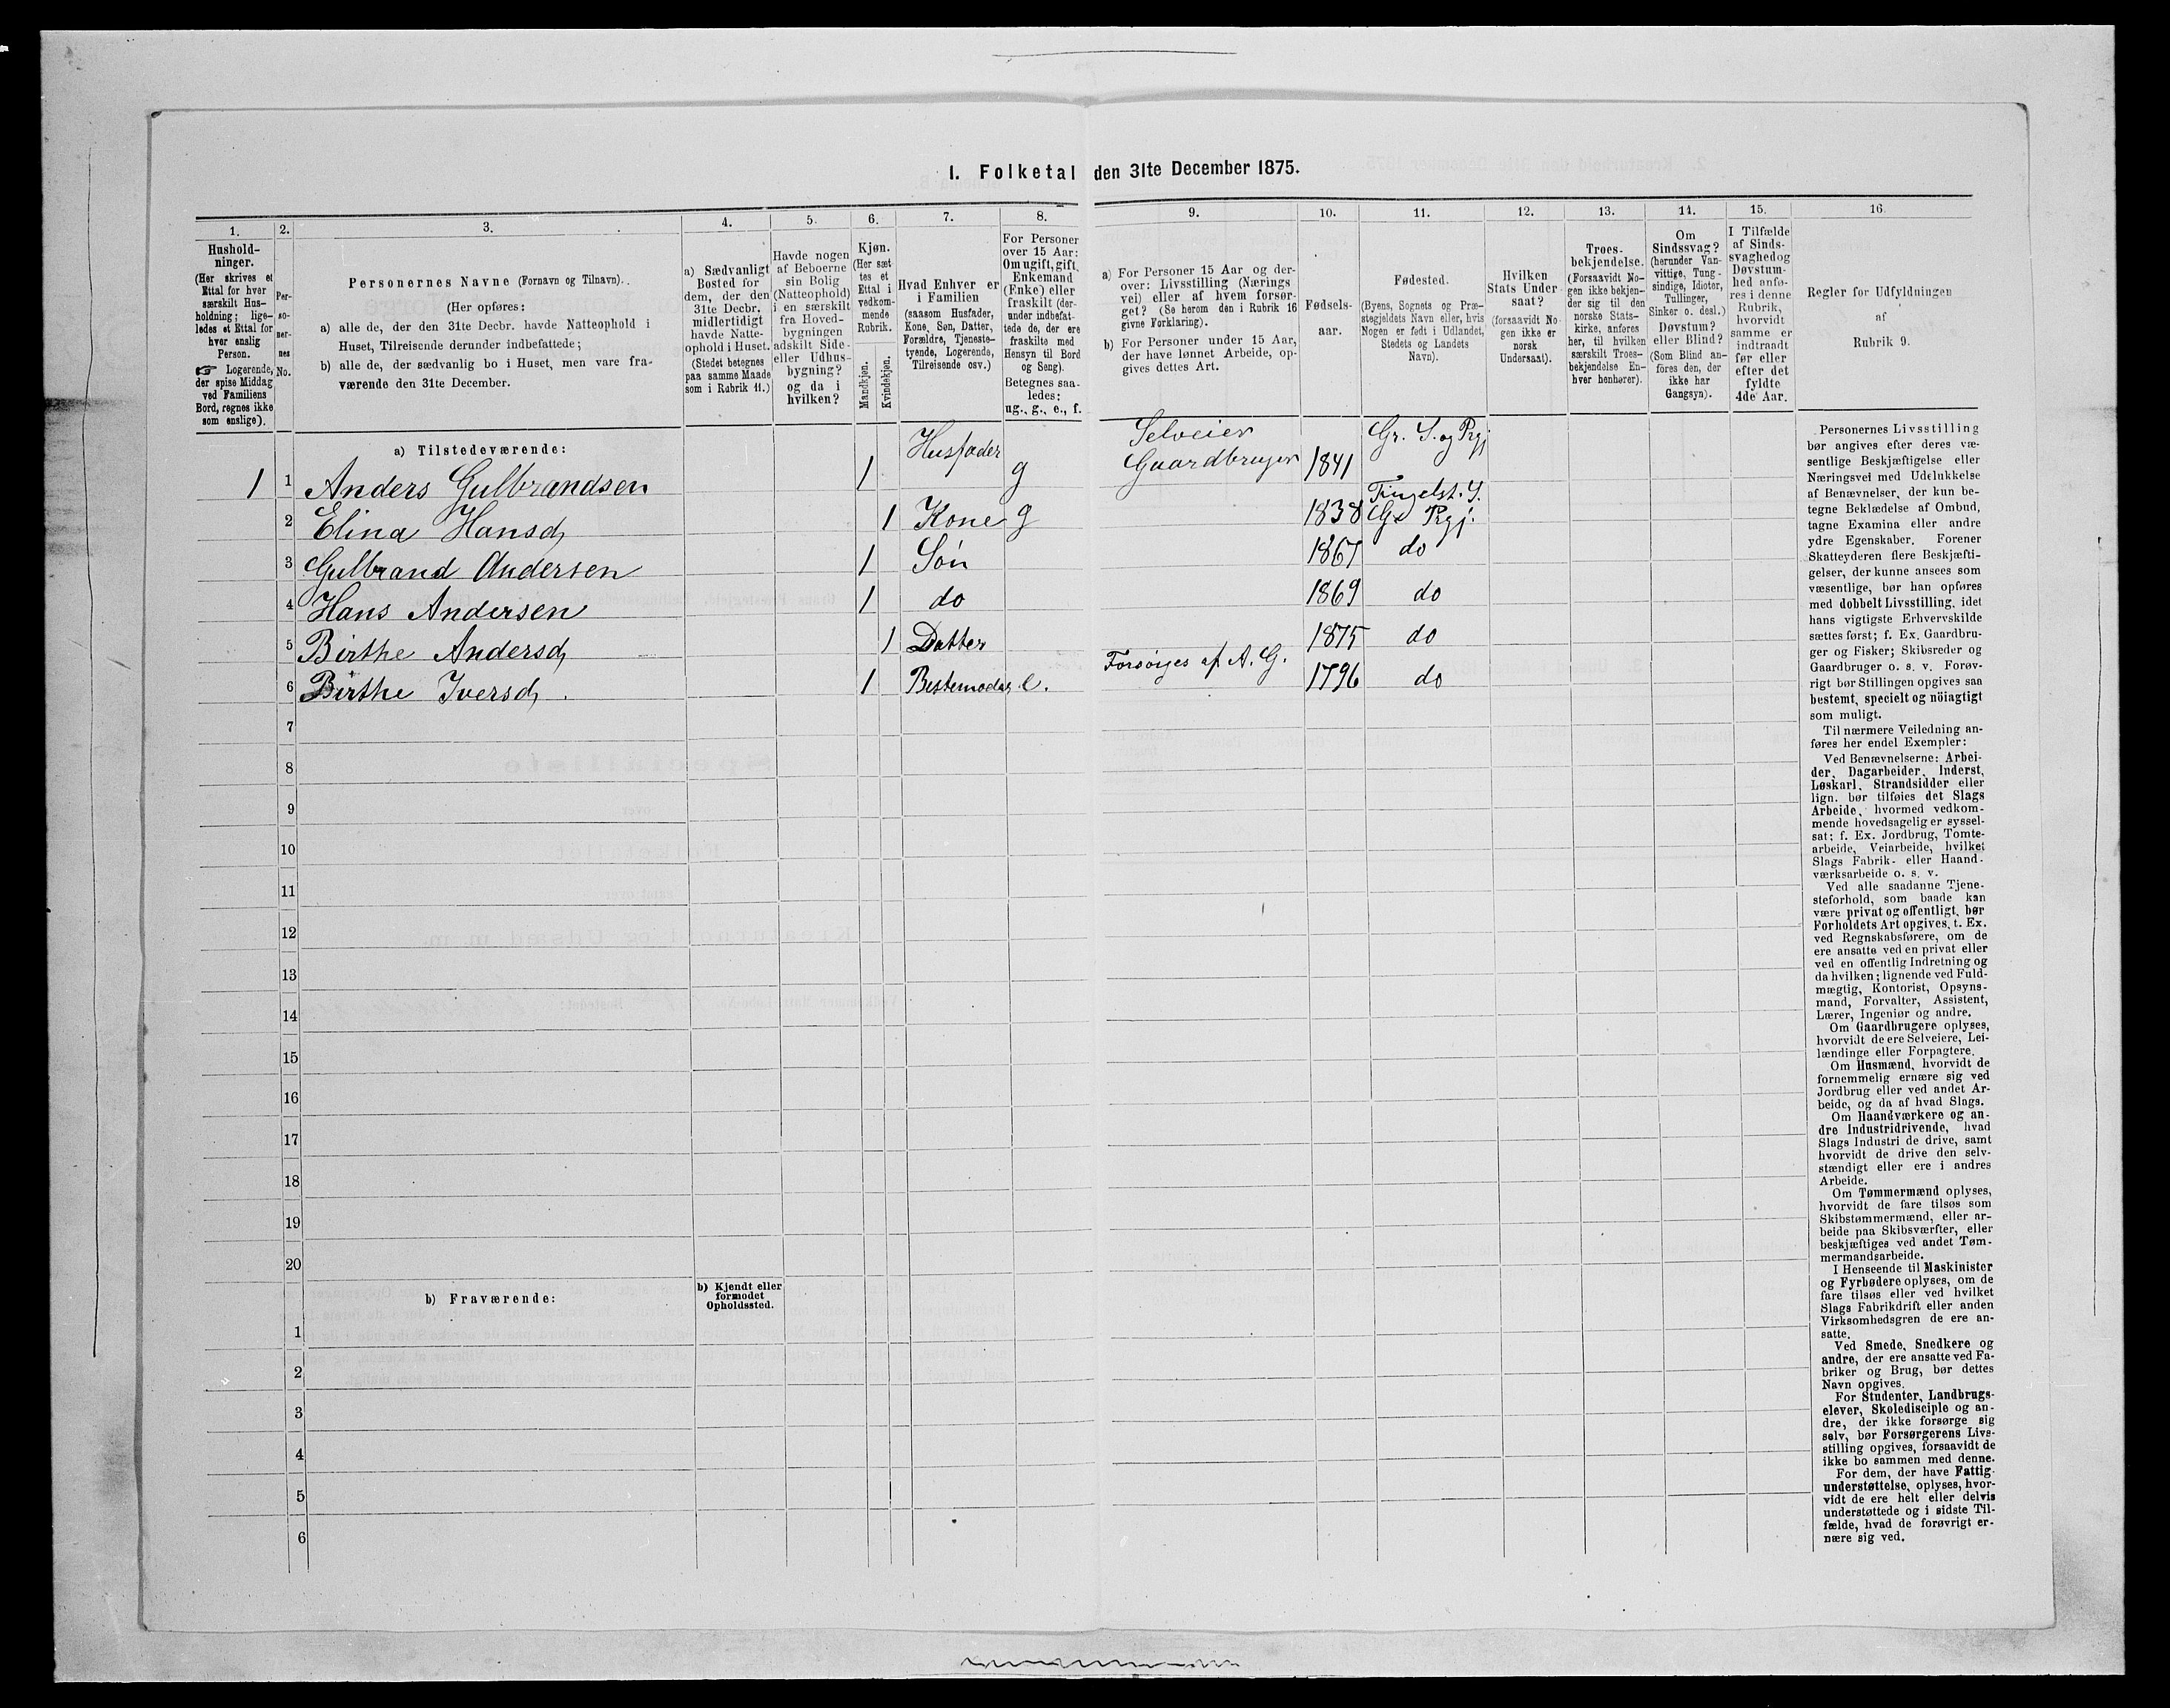 I. Folketal den 31te December 1875.
1. 2. 3. 4. 5. 6. 7. 8. 9. 10. 11. 12. 13. 14. 15. 16.
Hushold-
ninger.
(Her skrives et
Ettal for hver
særskilt Hus-
holdning; lige-
ledes et Ettal for
hver enslig
Person.
☞ Logerende,
der spise Middag
ved Familiens
Bord, regnes ikke
som enslige).
Per-
so-
ner-
nes
No.
Personernes Navne (Fornavn og Tilnavn).
(Her opføres:
a) alle de, der den 31te Decbr. havde Natteophold i
Huset, Tilreisende derunder indbefattede;
b) alle de, der sædvanlig bo i Huset, men vare fra-
værende den 31te December.
a) Sædvanligt
Bosted for
dem, der den
31te Decbr.
midlertidigt
havde Natte-
ophold i Huset.
(Stedet betegnes
paa samme Maade
som i Rubrik 11.)
Havde nogen
af Beboerne
sin Bolig
(Natteophold)
i en særskilt
fra Hoved-
bygningen
adskilt Side-
eller Udhus-
bygning?
og da i
hvilken?
Kjøn.
(Her sæt
tes et
Ettal i
vedkom-
mende
Rubrik.
Mandkjøn.
Kvindekjøn.
Hvad Enhver er
i Familien
(saasom Husfader,
Kone, Søn, Datter,
Forældre, Tjeneste-
tyende, Logerende,
Tilreisende osv.)
For Personer
over 15 Aar:
Om ugift, gift,
Enkemand
(Enke) eller
fraskilt (der-
under indbefat-
tede de, der ere
fraskilte med
Hensyn til Bord
og Seng).
Betegnes saa-
ledes:
ug., g., e., f.
a) For Personer 15 Aar og der-
over: Livsstilling (Nærings
vei) eller af hvem forsør-
get? (Se herom den i Rubrik 16
givne Forklaring).
b) For Personer under 15 Aar,
der have lønnet Arbeide, op-
gives dettes Art.
Fødsels-
aar.
Fødested.
(Byens, Sognets og Præ-
stegjeldets Navn eller, hvis
Nogen er født i Udlandet,
Stedets og Landets
Navn).
Hvilken
Stats Under
saat?
(forsaavidt No-
gen ikke er
norsk
Undersaat).
Troes-
bekjendelse.
(Forsaavidt No-
gen ikke bekjen-
der sig til den
norske Stats-
kirke, anføres
her, til hvilken
særskilt Troes-
bekjendelse En-
hver henhører).
Om
Sindssvag?
(herunder Van-
vittige, Tung-
sindige, Idioter,
Tullinger,
Sinker o. desl.)
Døvstum?
eller Blind?
(Som Blind an-
føres den, der
ikke har
Gangsyn).
I Tilfælde
af Sinds-
svaghed og
Døvstum-
hed anfø-
res i denne
Rubrik,
hvorvidt
samme er
indtraadt
før eller
efter det
fyldte
4de Aar.
Regler for Udfyldningen
af
Rubrik 9.
a) Tilstedeværende:
1 1 Anders Gulbrandsen 1 Husfader g Selveier Gaardbruger 1841 Gr. S. og Prgj
2 Elina Hansd, 1 Kone g 1838 Tingelst. S. Gr Prgj.
3 Gulbrand Andersen 1 Søn 1867 do
4 Hans Andersen 1 do 1869 do
5 Birthe Andersd, 1 Datter 1875 do
6 Birthe Iversd, 1 Bestemoder e. Forsørges af A. G. 1796 do
7
8
9
10
11
12
13
14
15
16
17
18
19
20
b) Fraværende:
b) Kjendt eller
formodet
Opholdssted.
1
2
3
4
5
6
Personernes Livsstilling
bør angives efter deres væ-
sentlige Beskjæftigelse eller
Næringsvei med Udelukkelse
af Benævnelser, der kun be-
tegne Beklædelse af Ombud,
tagne Examina eller andre
ydre Egenskaber. Forener
Skatteyderen flere Beskjæfti-
gelser, der kunne ansees som
væsentlige, bør han opføres
med dobbelt Livsstilling, idet
hans vigtigste Erhvervskilde
sættes først; f. Ex. Gaardbru-
ger og Fisker; Skibsreder og
Gaardbruger o. s. v. Forøv-
rigt bør Stillingen opgives saa
bestemt, specielt og nöiagtigt
som muligt.
Til nærmere Veiledning an-
føres her endel Exempler:
Ved Benævnelserne: Arbei-
der, Dagarbeider, Inderst,
Løskarl, Strandsidder eller
lign. bør tilføies det Slags
Arbeide, hvormed vedkom-
mende hovedsagelig er syssel-
sat; f. Ex. Jordbrug, Tomte-
arbeide, Veiarbeide, hvilket
Slags Fabrik- eller Haand-
værksarbeide o. s. v.
Ved alle saadanne Tjene-
steforhold, som baade kan
være privat og offentligt, bør
Forholdets Art opgives, t. Ex.
ved Regnskabsførere, om de
ere ansatte ved en privat eller
ved en offentlig Indretning og
da hvilken; lignende ved Fuld-
mægtig, Kontorist, Opsyns-
mand, Forvalter, Assistent,
Lærer, Ingeniør og andre.
Om Gaardbrugere oplyses,
hvorvidt de ere Selveiere, Lei-
lændinge eller Forpagtere.
Om Husmænd, hvorvidt de
fornemmelig ernære sig ved
Jordbrug eller ved andet Ar-
beide, og da af hvad Slags.
Om Haandværkere og an-
dre Industridrivende, hvad
Slags Industri de drive, samt
hvorvidt de drive den selv-
stændigt eller ere i andres
Arbeide.
Om Tømmermænd oplyses,
hvorvidt de fare tilsøs som
Skibstømmermænd, eller ar-
beide paa Skibsværfter, eller
beskjæftiges ved andet Tøm-
mermandsarbeide.
I Henseende til Maskinister
og Fyrbødere oplyses, om de
fare tilsøs eller ved hvilket
Slags Fabrikdrift eller anden
Virksomhedsgren de ere an-
satte.
Ved Smede, Snedkere og
andre, der ere ansatte ved Fa-
briker og Brug, bør dettes
Navn opgives.
For Studenter, Landbrugs-
elever, Skoledisciple og an-
dre, der ikke forsørge sig
selv, bør Forsørgerens Livs-
stilling opgives, forsaavidt de
ikke bo sammen med denne.
For dem, der have Fattig-
understøttelse, oplyses, hvor-
vidt de ere helt eller delvis
understøttede og i sidste Til-
fælde, hvad de forøvrigt er-
nære sig ved.